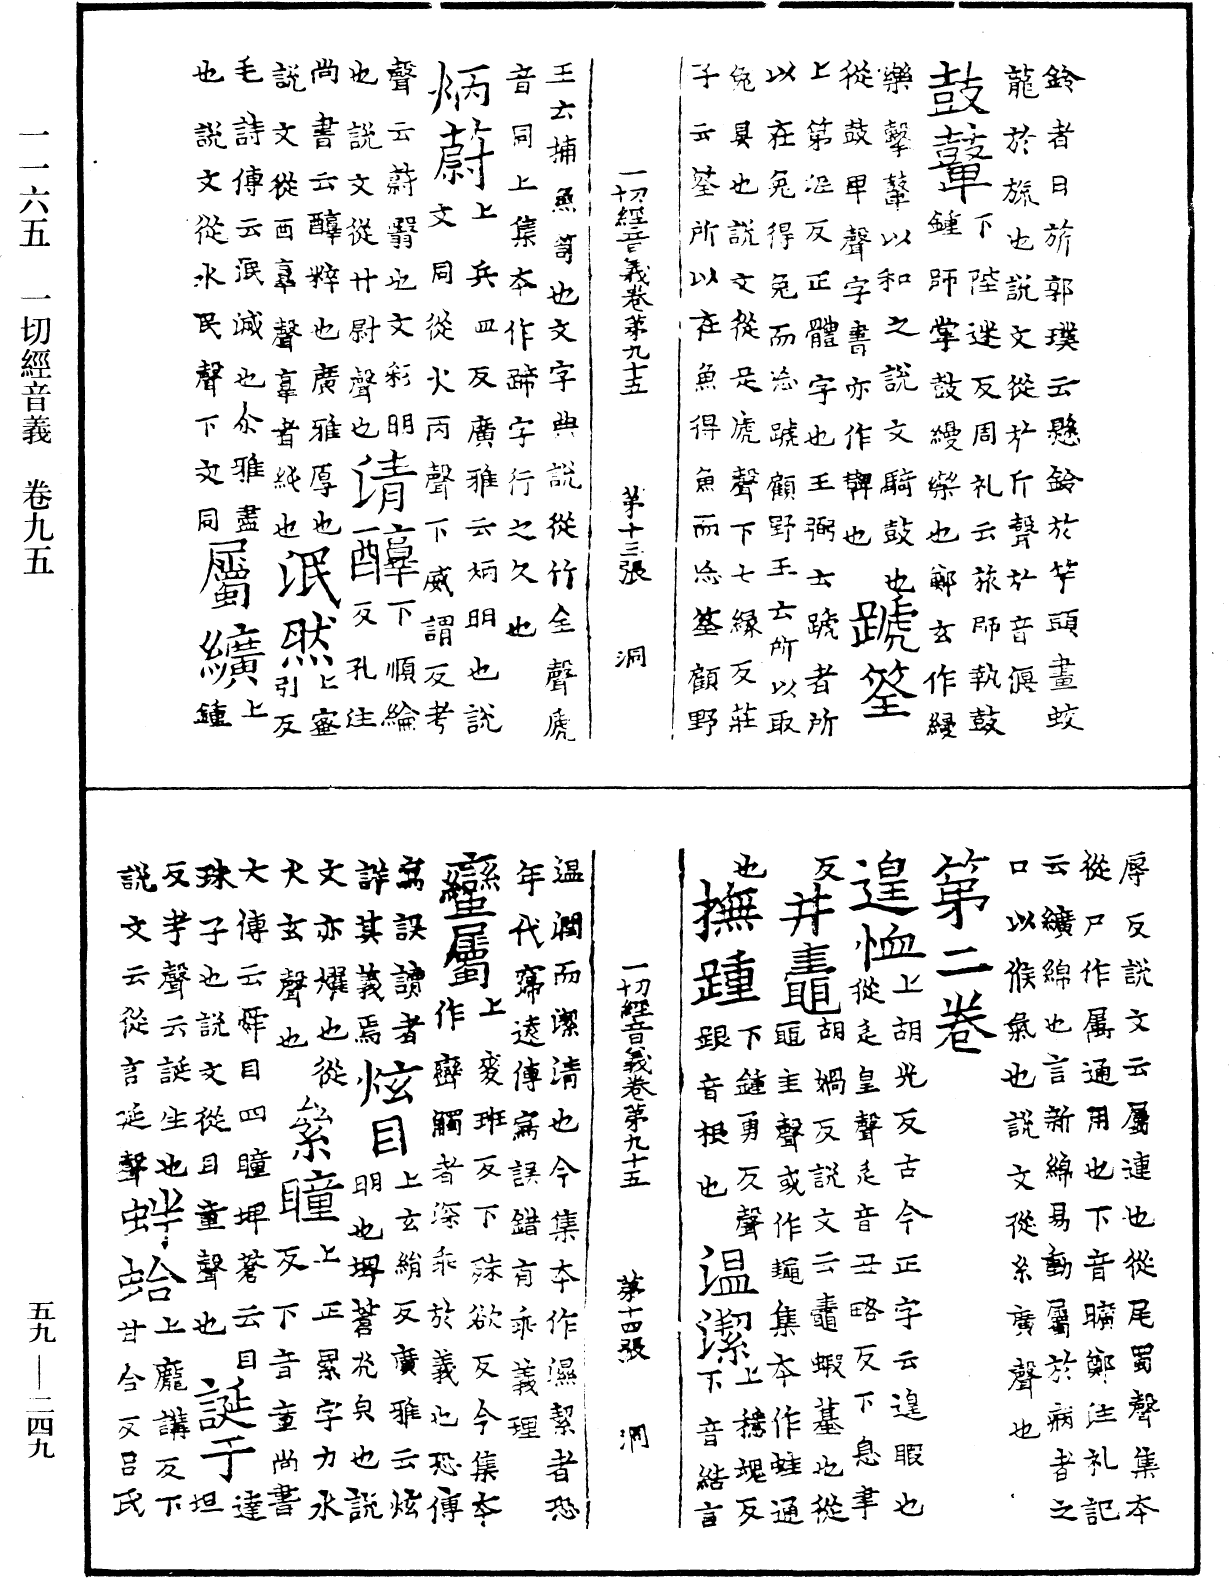 鈴者曰旂郭璞云懸鈴於竿頭畫蛟
龍於旒也說文從㫃斤聲㫃音偃
鼓鼙下陛迷反周礼云旅師執鼓
鍾師掌鼓縵樂也鄭玄作縵
樂擊鼙以和之說文騎鼓也
從鼓卑聲字書亦作鞞也
蹏筌
上第泥反正體字也王弼云蹏者所
以在兔得兔而忘蹏顧野王云所以取
兔具也說文從足虒聲下七緣反莊
子云筌所以在魚得魚而忘筌顧野
一切經音義卷第九十五 第十三張 洞
王云捕魚笱也文字典說從竹全聲虒
音同上集本作蹄字行之久也
炳蔚上兵皿反廣雅云炳明也說
文同從火丙聲下威謂反考
聲云蔚翳也文彩明
也說文從廿尉聲也
清醇下順綸
反孔注
尚書云醇粹也廣雅厚也
說文從酉𦎫聲𦎫者純也
泯然上蜜
引反
毛詩傳云泯滅也尒雅盡
也說文從水民聲下文同
屬纊上
鍾
辱反說文云屬連也從尾蜀聲集本
從尸作属通用也下音曠鄭注礼記
云纊綿也言新綿易動屬於病者之
口以候氣也說文從糸廣聲也
第二卷
遑恤上胡光反古今正字云遑暇也
從辵皇聲辵音丑略反下息聿
反
井鼃胡媧反說文云鼃蝦蟇也從
黽圭聲或作䵷集本作蛙通
也
撫踵下鍾勇反聲
跟音根也
温潔上穩魂反
下音結言
温潤而潔清也今集本作濕絜者恐
年代寖遠傳寫誤錯有乖義理
蠻屬上麥班反下殊欲反今集本
作臠觸者深乖於義也恐傳
寫誤讀者
詳其義焉
炫目上玄絹反廣雅云炫
明也埤蒼光皃也說
文亦燿也從
火玄聲也
絫瞳上正累字力水
反下音童尚書
大傳云舜目四瞳埤蒼云目
珠子也說文從目童聲也
誕于達
坦
反考聲云誕生也
說文云從言延聲
蜯蛤上龐講反下
甘合反呂氏
一切經音義卷第九十五 第十四張 洞
一一六五 一切經音義 卷九五
五九—二四九